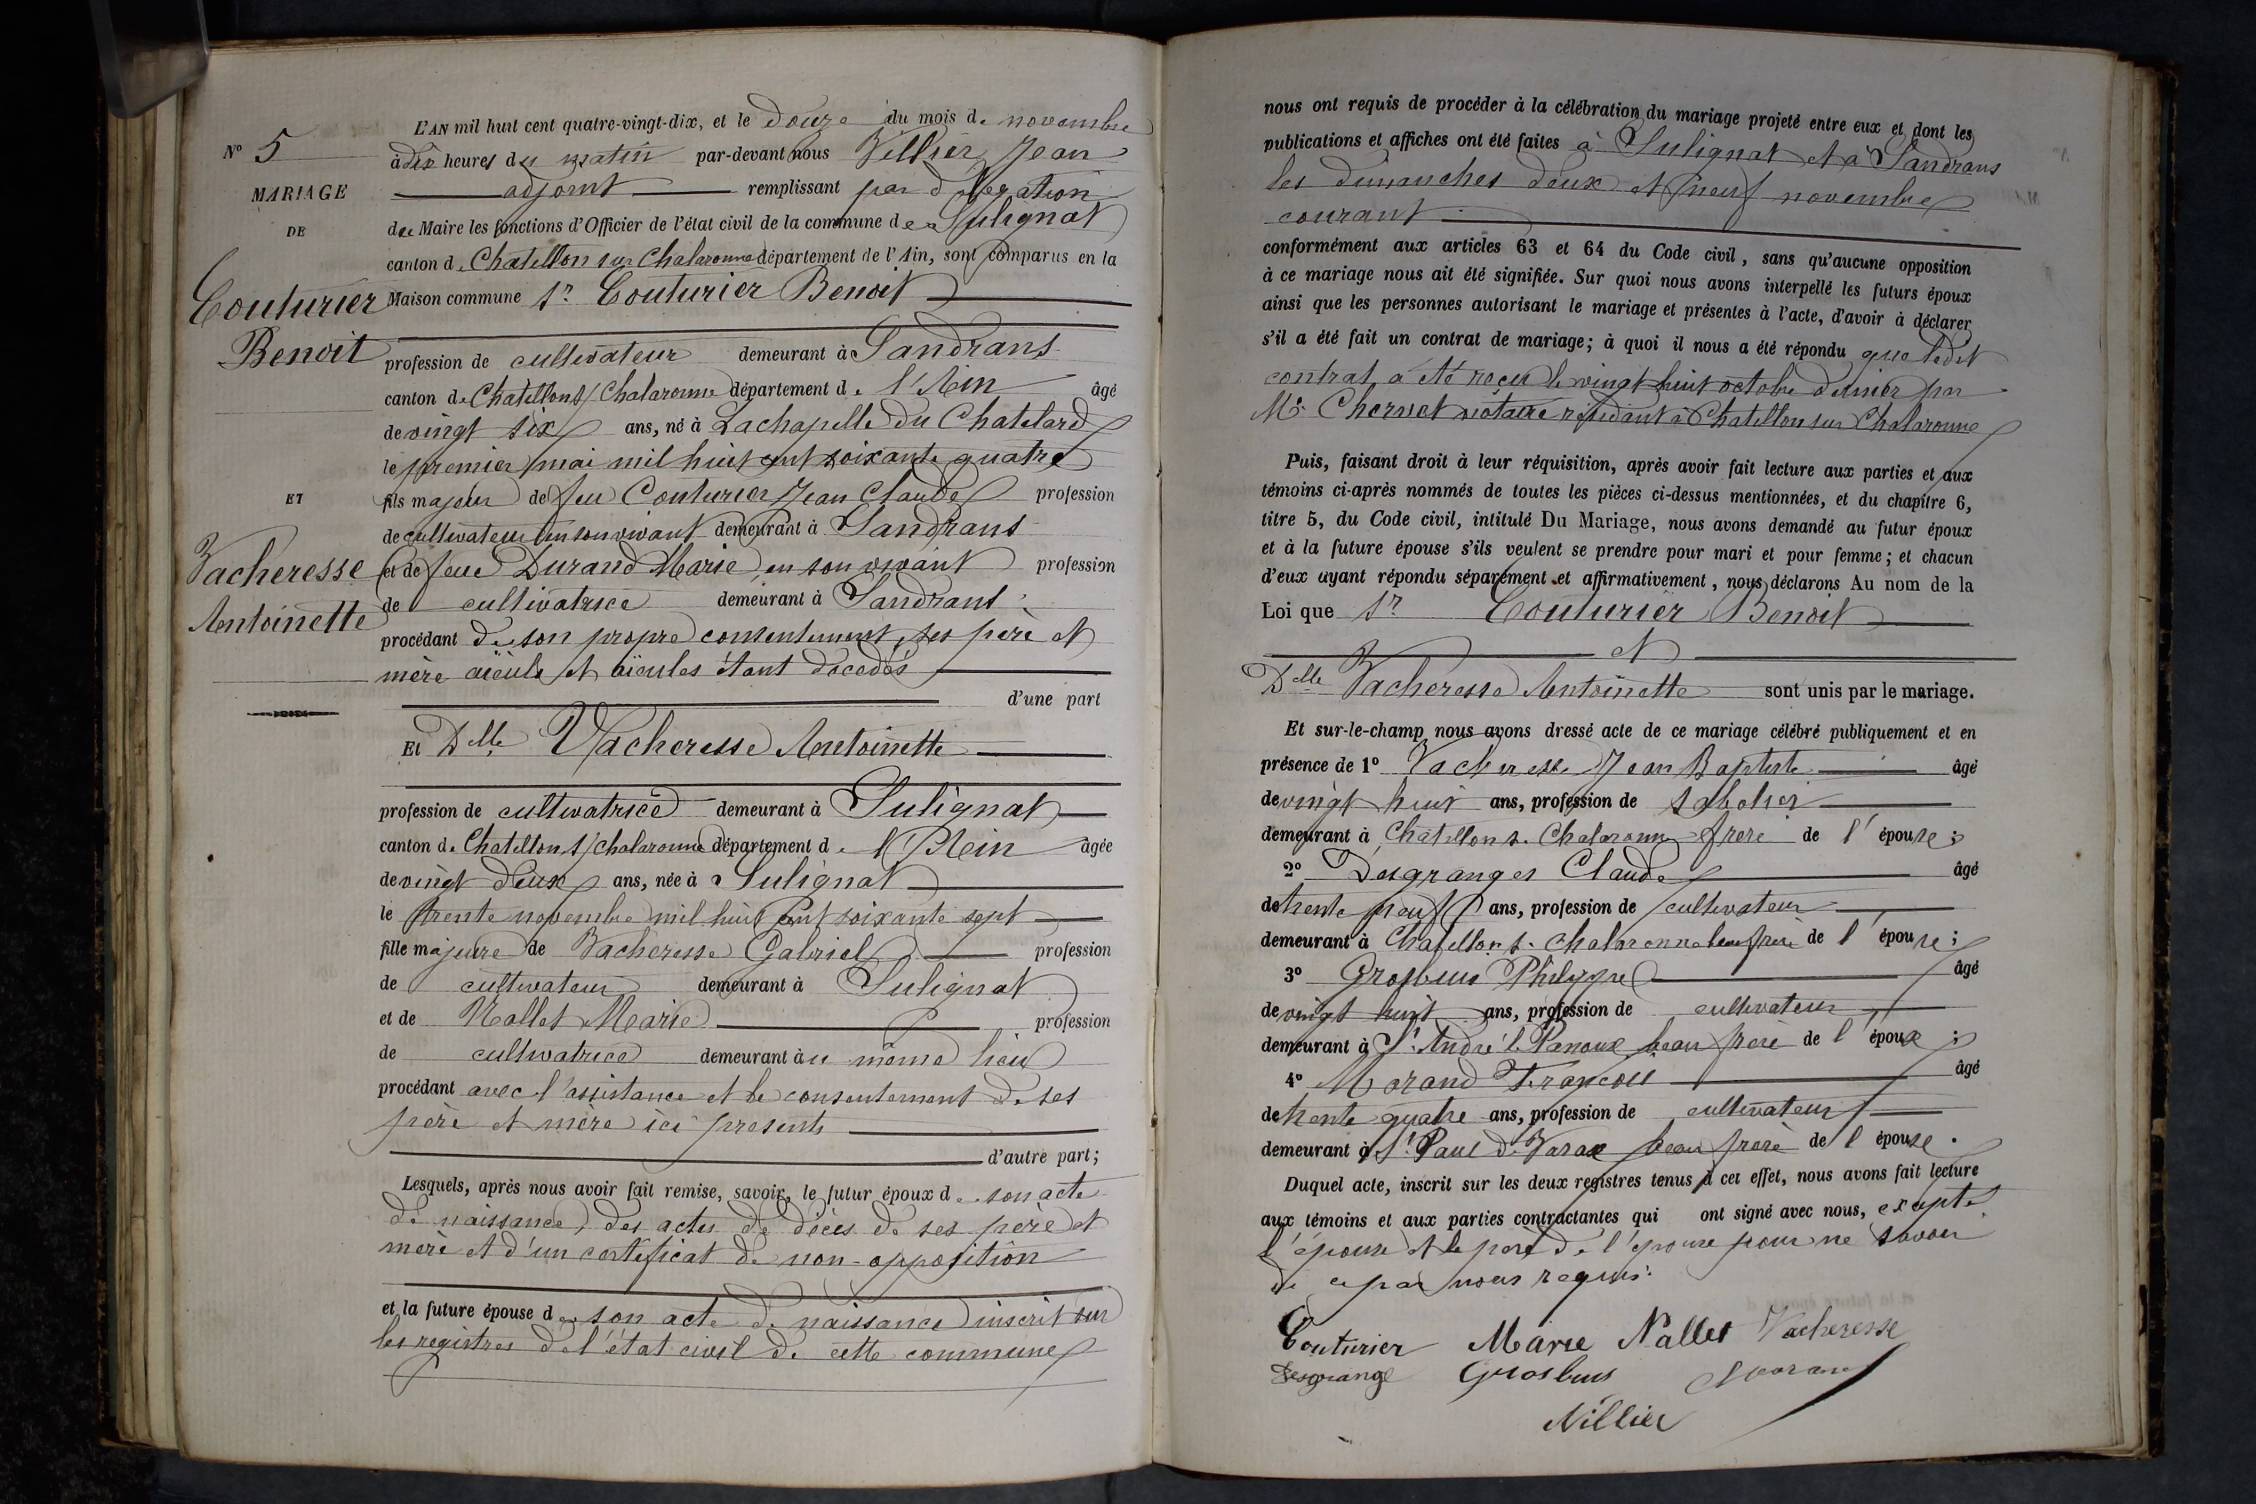 N° 5
MARIAGE
DE
Couturier
Benoit
ET
Vacheresse
Antoinette
L'AN mil huit cent quatre-vingt-dix, et le douze du mois de novembre
à dix heures du matin par-devant nous Villier Jean
adjoint remplissant par délégation
du Maire les fonctions d'Officier de l'état civil de la commune de Sulignat
canton de Chatillon sur Chalaronne département de l'Ain, sont comparus en la
Maison commune Sr Couturier Benoit
profession de cultivateur demeurant à Sandrans
canton de Chatillon s/ Chalaronne département de l'Ain âgé
de vingt six ans, né à Lachapelle du Chatelard
le premier mai mil huit cent soixante quatre
fils majeur de feu Couturier Jean Claude profession
de cultivateur en son vivant demeurant à Sandrans
et de feue Durand Marie en son vivant profession
de cultivatrice demeurant à Sandrans
procédant de son propre consentement, ses père et
mère aïeuls et aïeules étant décédés
d'une part
Et Delle Vacheresse Antoinette
profession de cultivatrice demeurant à Sulignat
canton de Chatillon s/ chalaronne département de l'Ain âgée
de vingt deux ans, née à Sulignat
le trente novembre mil huit cent soixante sept
fille majeure de Vacheresse Gabriel profession
de cultivateur demeurant à Sulignat
et de Nallet Marie profession
de cultivatrice demeurant au même lieu
procédant avec l'assistance et le consentement de ses
père et mère ici présents
d'autre part;
Lesquels, après nous avoir fait remise, savoir, le futur époux de son acte
de naissance, des actes de décès de ses père et
mère et d'un certificat de non-opposition
et la future épouse de son acte de naissance inscrit sur
les registres de l'état civil de cette commune
nous ont requis de procéder à la célébration du mariage projeté entre eux et dont les
publications et affiches ont été faites à Sulignat et à Sandrans
les dimanches deux et neuf novembre
courant
conformément aux articles 63 et 64 du Code civil, sans qu'aucune opposition
à ce mariage nous ait été signifiée. Sur quoi nous avons interpellé les futurs époux
ainsi que les personnes autorisant le mariage et présentes à l'acte, d'avoir à déclarer
s'il a été fait un contrat de mariage; à quoi il nous a été répondu que ledit
contrat a été reçu le vingt huit octobre dernier par
Me notaire résidant à Chatillon sur Chalaronne
Puis, faisant droit à leur réquisition, après avoir fait lecture aux parties et aux
témoins ci-après nommés de toutes les pièces ci-dessus mentionnées, et du chapitre 6,
titre 5, du Code civil, intitulé Du Mariage, nous avons demandé au futur époux
et à la future épouse s'ils veulent se prendre pour mari et pour femme; et chacun
d'eux ayant répondu séparément et affirmativement, nous déclarons Au nom de la
Loi que Sr Couturier Benoit
et
Delle Vacheresse Antoinette sont unis par le mariage.
Et sur-le-champ nous avons dressé acte de ce mariage célébré publiquement et en
présence de 1° Vacheresse Jean Baptiste âgé
de vingt huit ans, profession de sabotier
demeurant à Chatillon s. Chalaronne frère de l'épouse;
2° Desgranges Claude âgé
de trente neuf ans, profession de cultivateur
demeurant à Chatillon s. Chalaronne beau frère de l'épouse;
3° Grosbuis Philippe âgé
de vingt huit ans, profession de cultivateur
demeurant à St André le Panoux beau frère de l'époux;
4° Morand François âgé
de trente quatre ans, profession de cultivateur
demeurant à St Paul de Varax beau frère de l'épouse.
Duquel acte, inscrit sur les deux registres tenus à cet effet, nous avons fait lecture
aux témoins et aux parties contractantes qui ont signé avec nous, excepté
l'épouse et le père de l'épouse pour ne savoir
de ce par nous requis.
Couturier Marie Nallet Vacheresse
Desgrange Grosbuis Morand
Villier